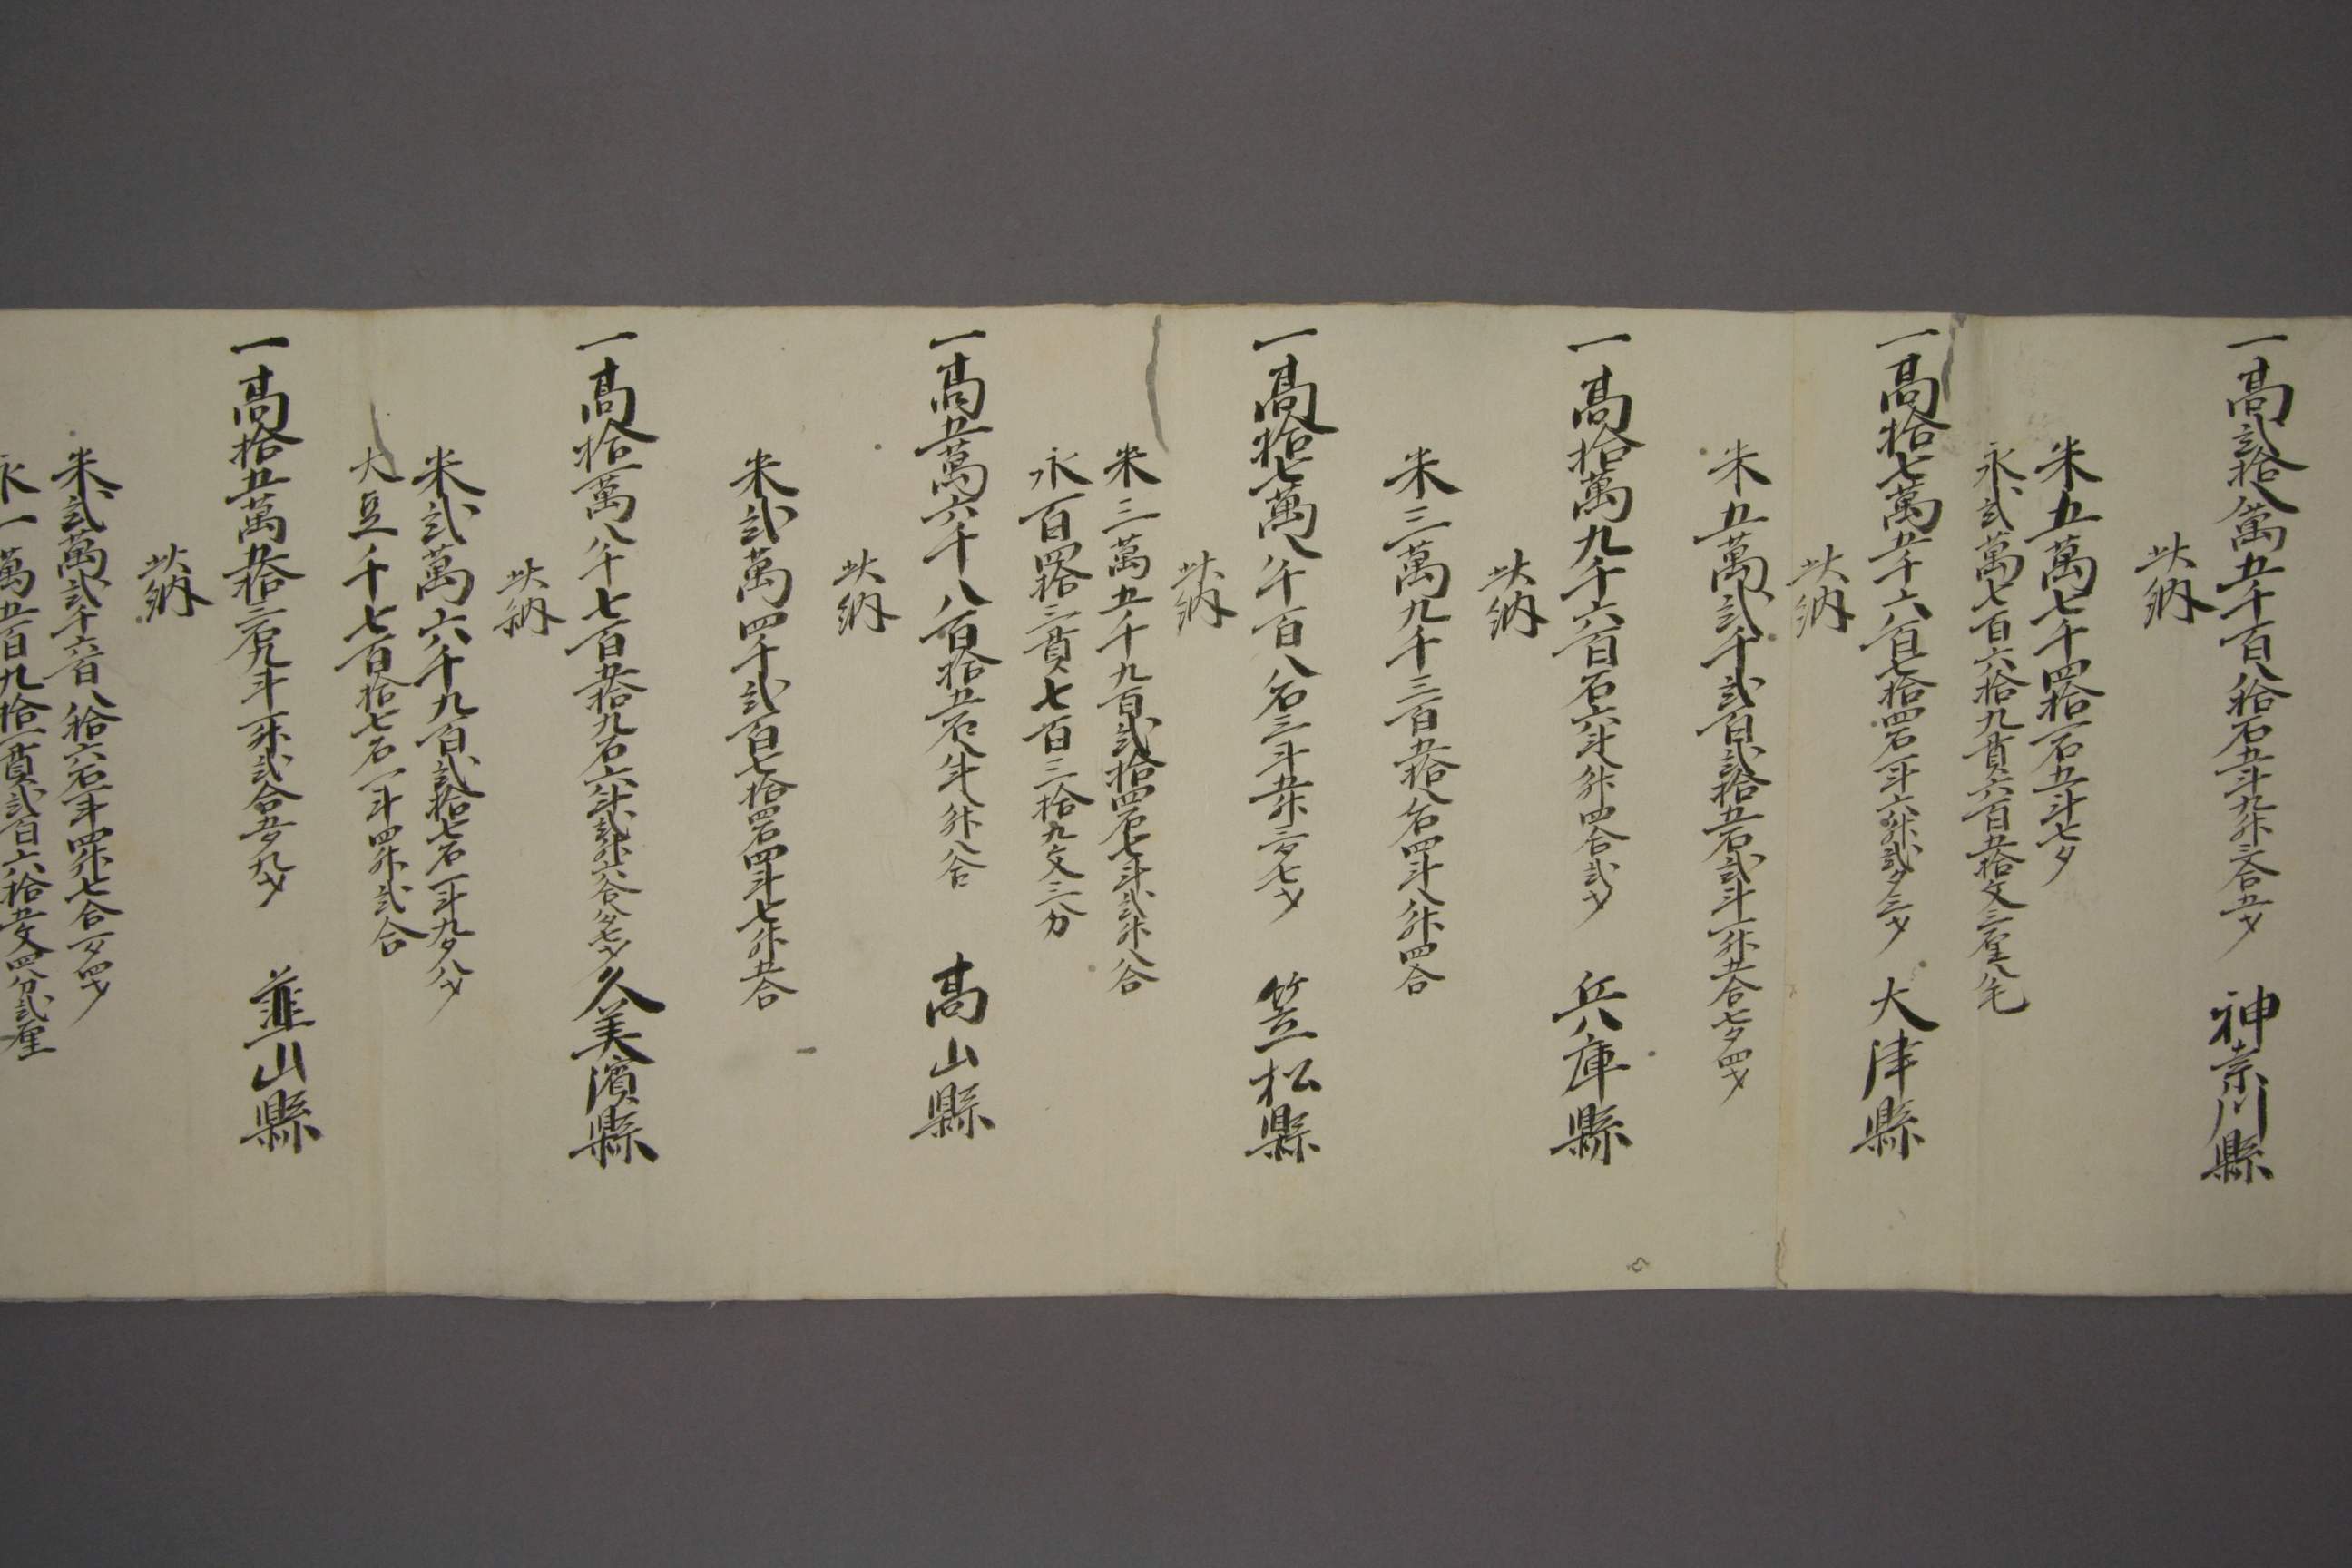 一高弐拾八萬五千百八拾石五斗九升三合五才　神奈川縣
此納
米五萬七千四拾一石五斗七夕
永弐萬七百六拾九貫六百五拾文三厘八毛
一高拾七萬五千六百七拾四石一斗六升弐夕三才　大津縣
此納
米五萬弐千弐百弐拾五石弐斗一升五合七夕四才
一高拾萬九千六百石六斗八升四合弐才　兵庫縣
此納
米三萬九千三百五拾八石四斗八升四合
一高拾七萬八千百八石三斗五升三夕七才　笠松縣
此納
米三萬五千九百弐拾四石七斗弐升八合
永百四拾三貫七百三拾九文三分
一高五萬六千八百拾五石八斗八升八合　高山縣
此納
米弐萬四千弐百七拾四石四斗七升五合
一高拾一萬八千七百五拾九石六斗弐升六合八夕七才　久美濱縣
此納
米弐萬六千九百弐拾七石一斗九夕八才
大豆千七百拾七石一斗四升弐合
一高拾五萬五拾三石九斗一升弐合五夕九才　韮山縣
此納
米弐萬弐千六百八拾六石一斗四升七合一夕四才
永一萬五百九拾一貫弐百六拾五文四分弐厘